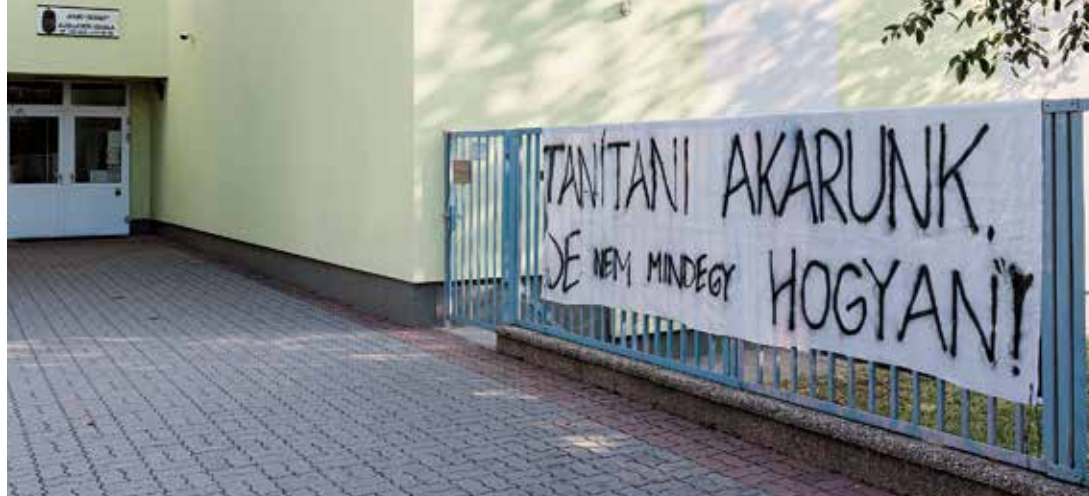 TANÍTANI AKARUNK.
DE NEM MINDEGY HOGYAN!